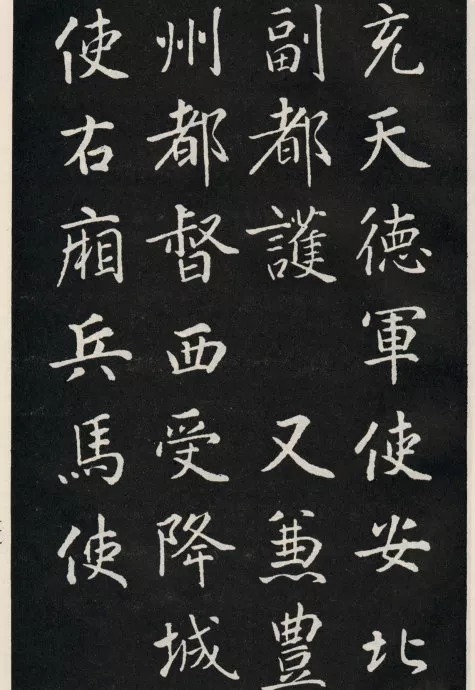 充天德軍使安北
副都護 又兼豐
州都督西受降城
使右廂兵馬使